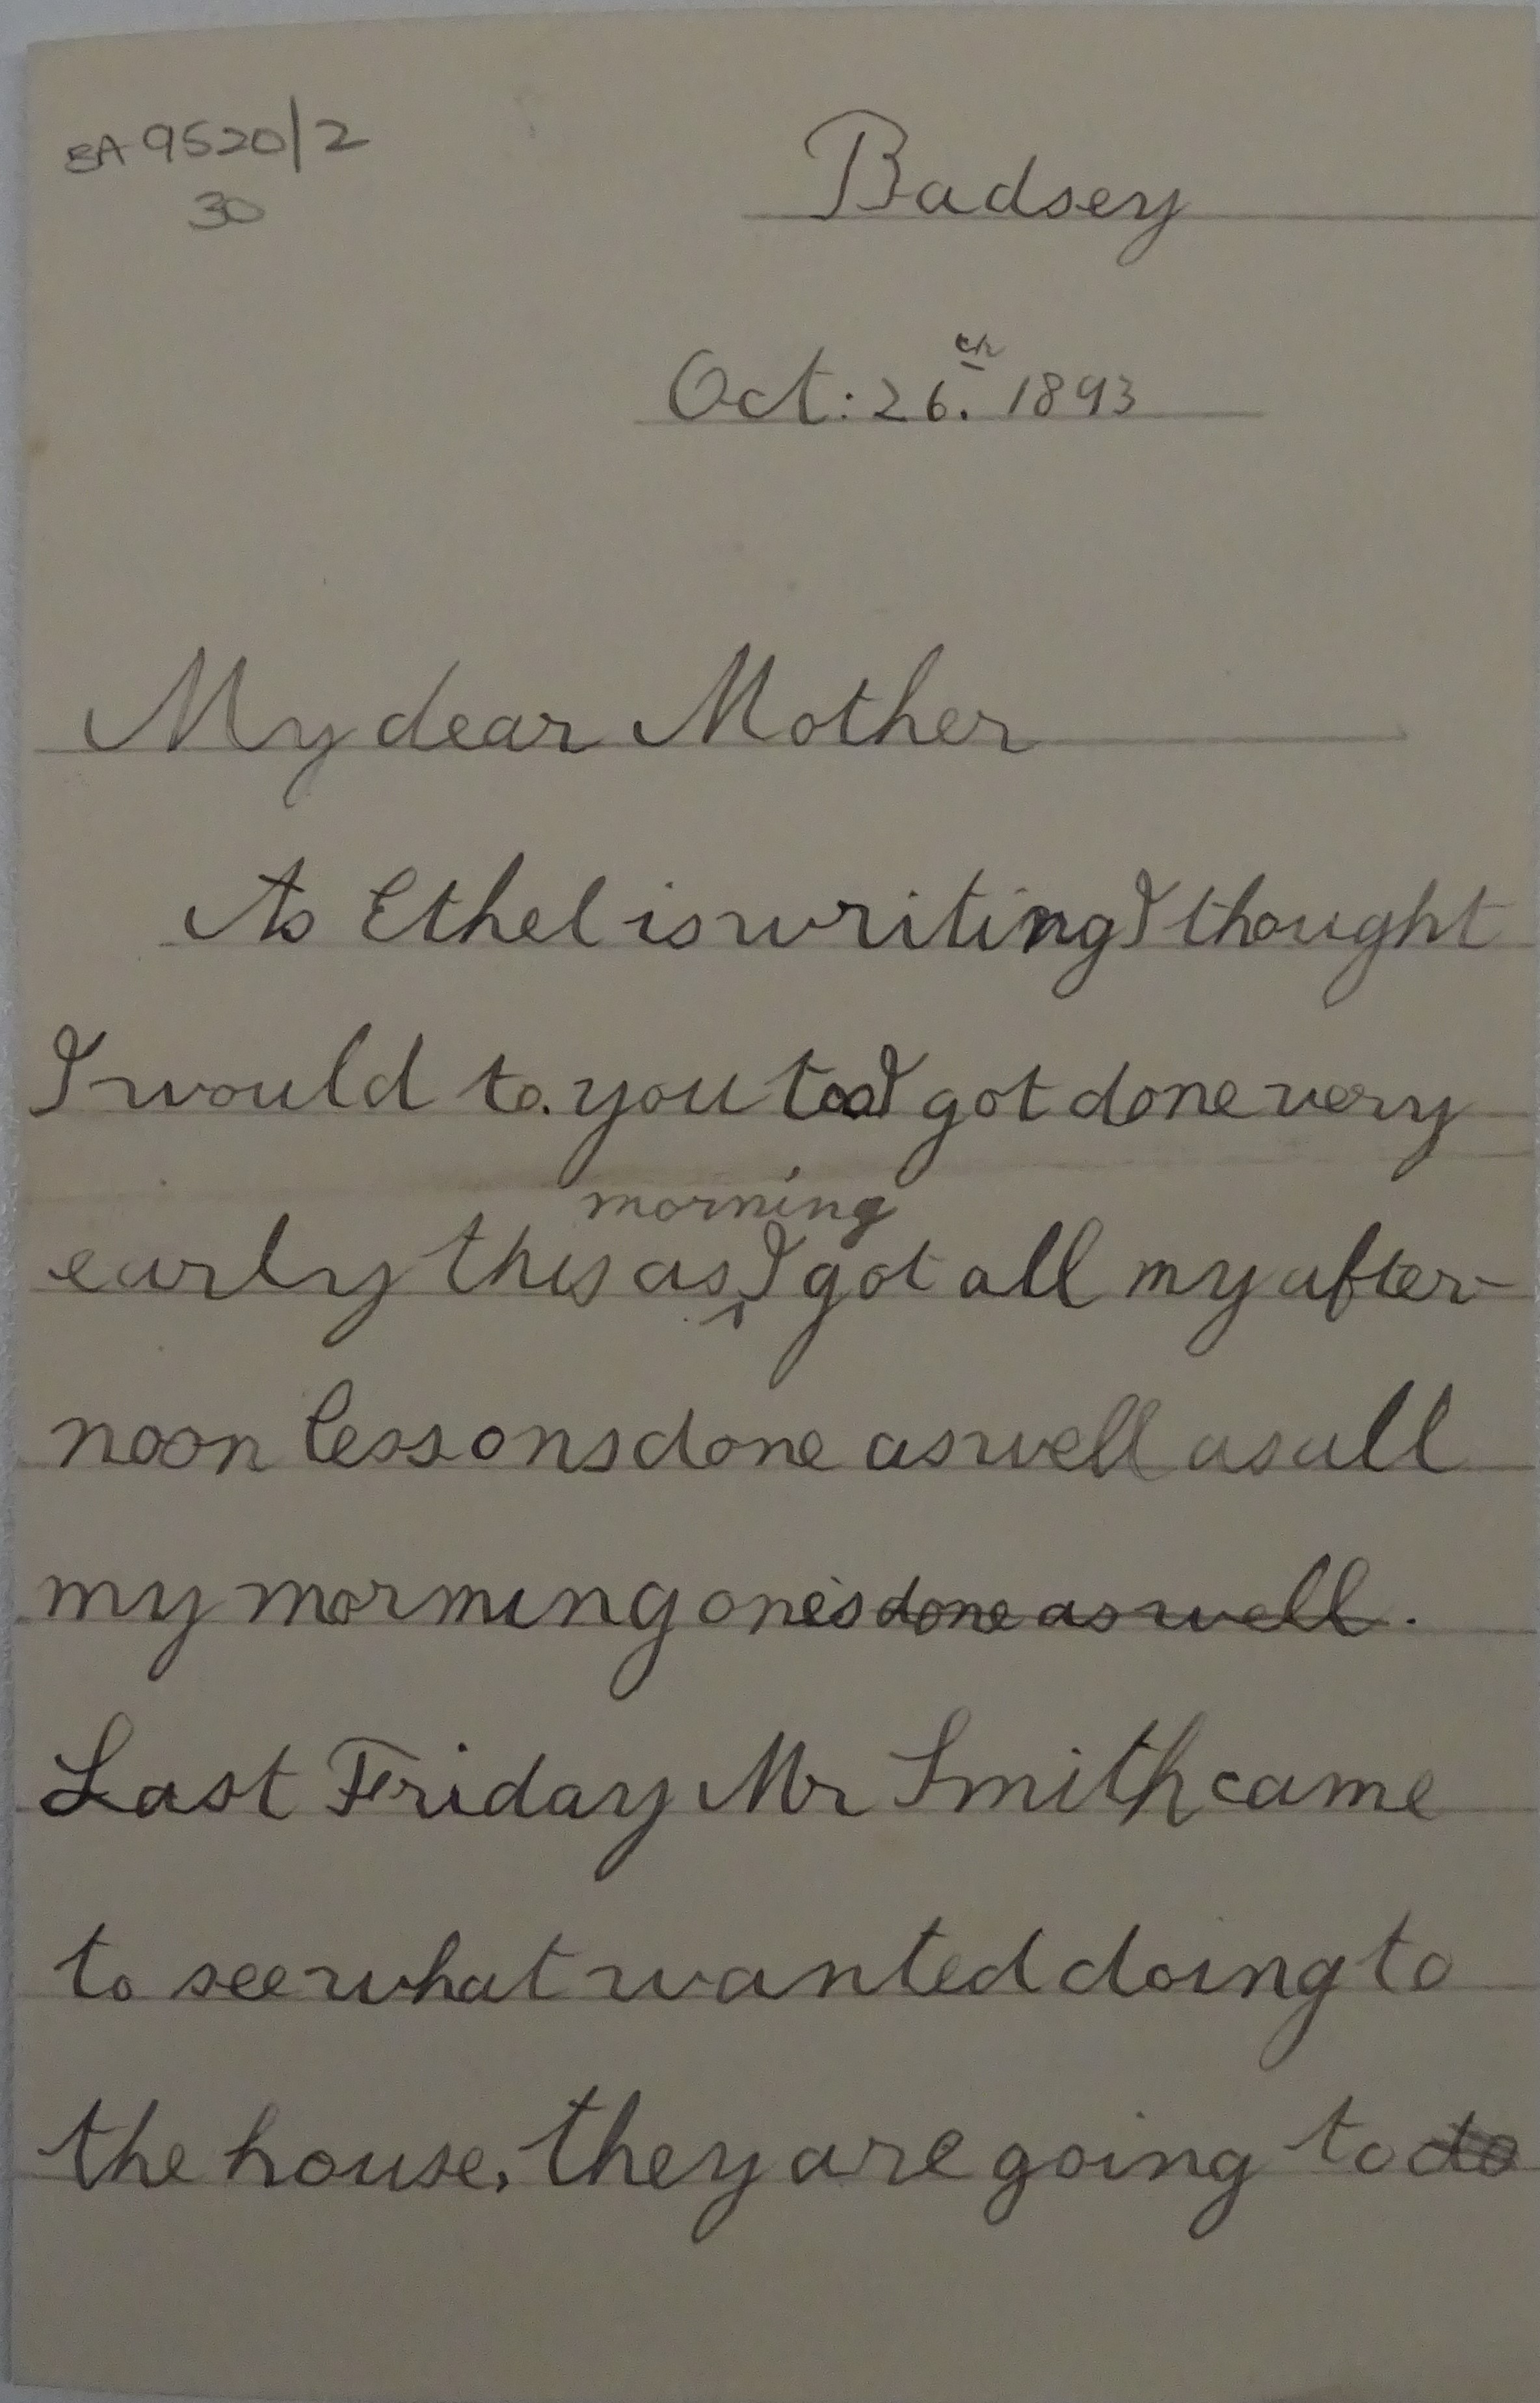 BA 9520/2
30
Badsey
Oct: 26.th 1893
My dear Mother
As Ethel is writing I thought
I would to. you too I got done very
morning
early this as I got all my after-
noon lessons done as well as all
my morning one's done as well.
Last Friday Mr Smith came
to see what wanted doing to
the house, they are going to do